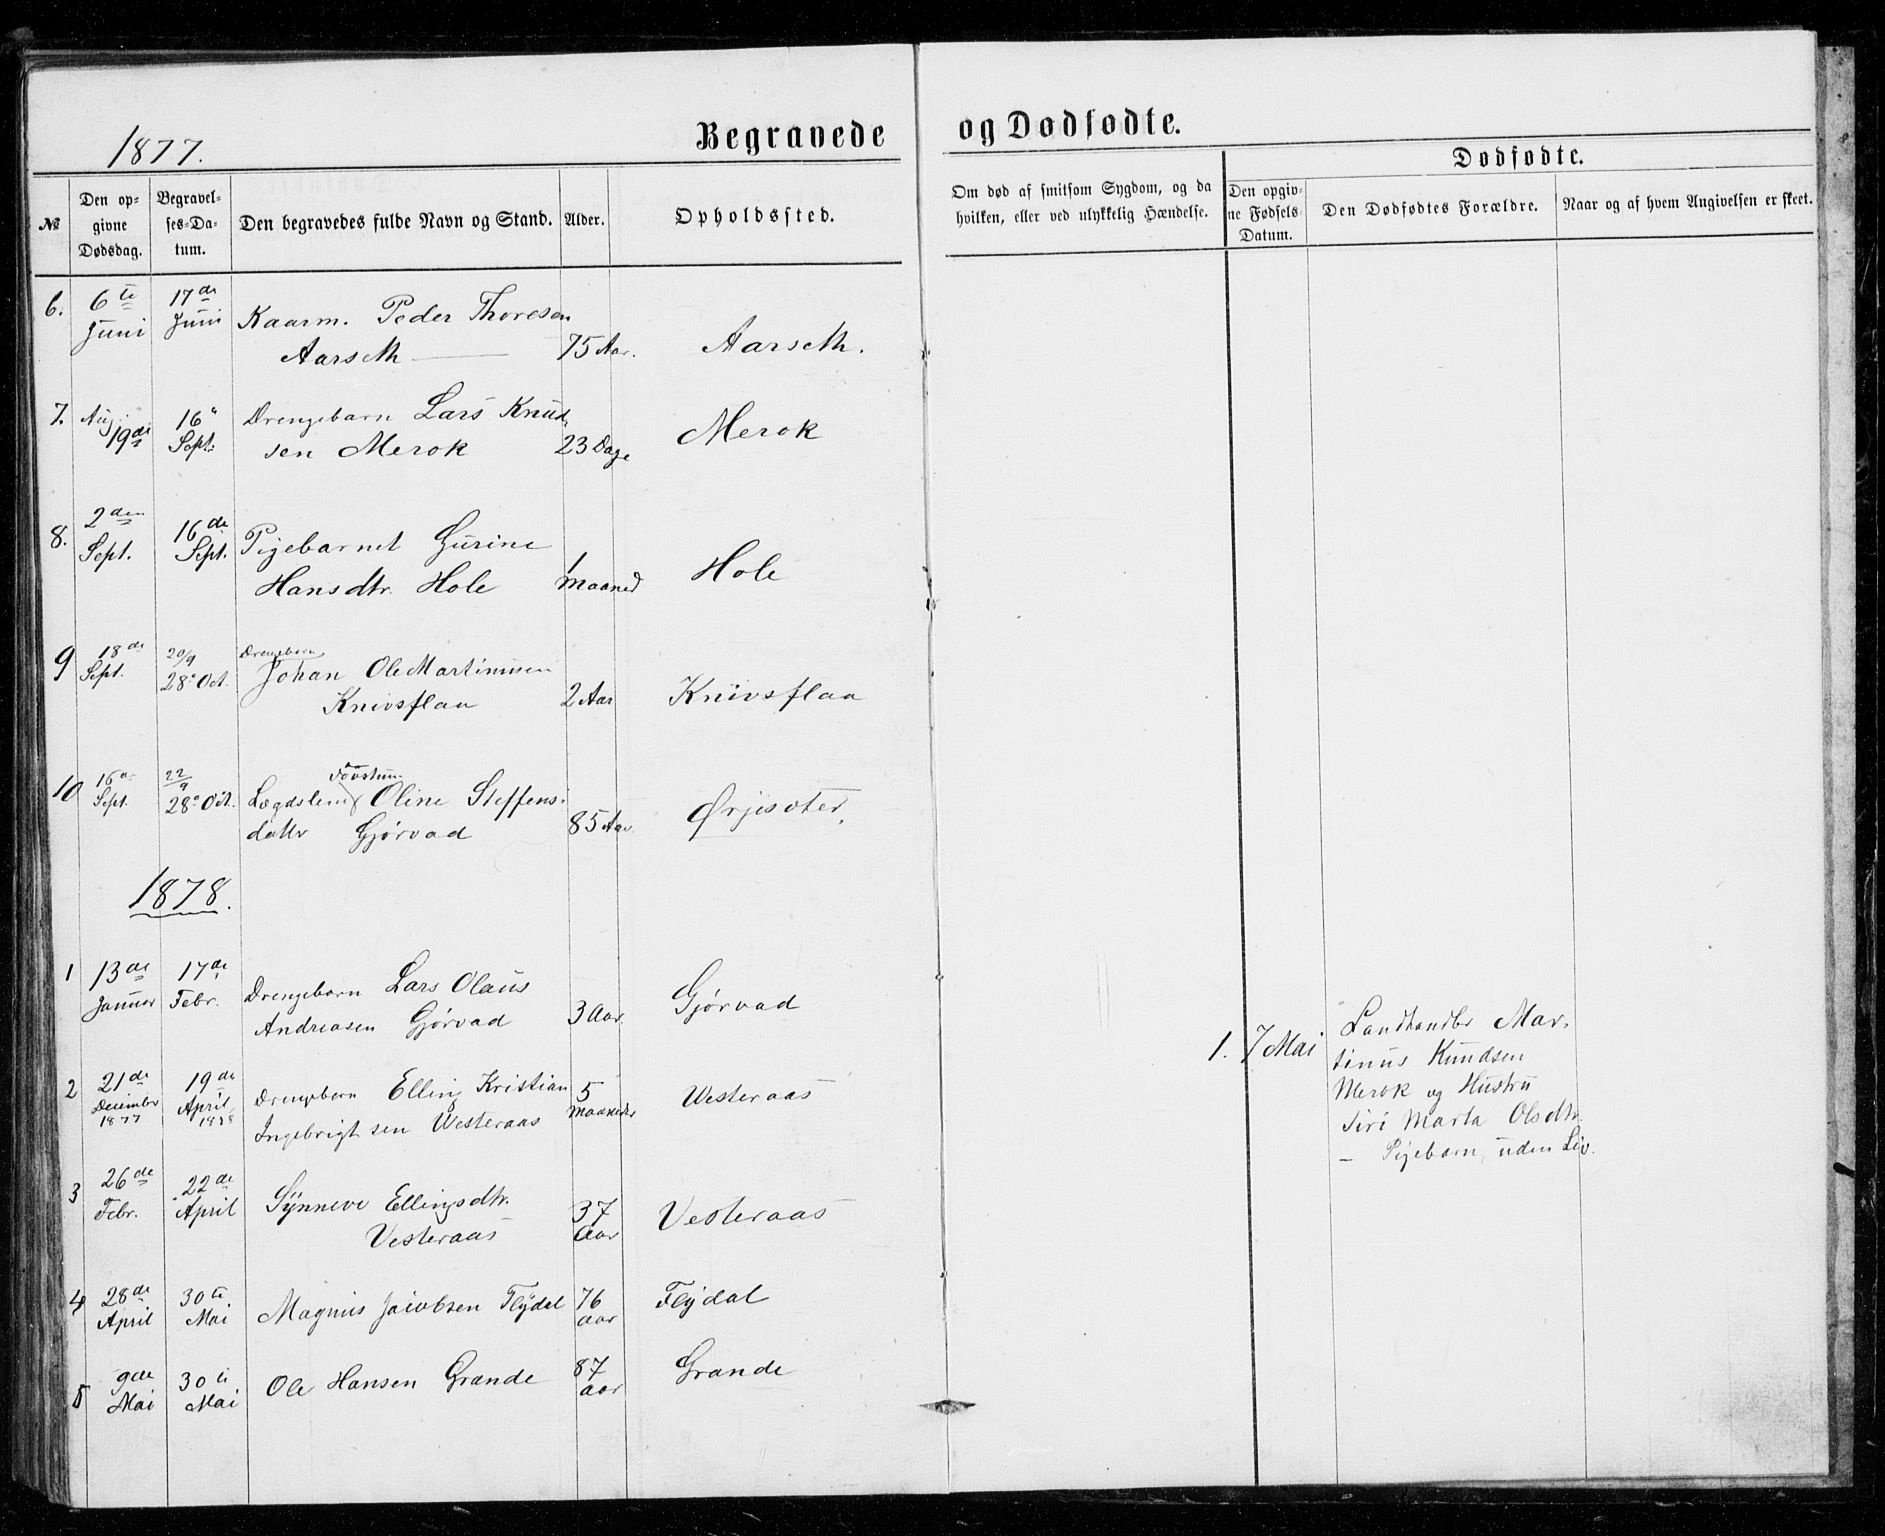 1877.
Begravede
№
Den op-
givne
Dødsdag.
Begravel-
ses-Da-
tum.
Den begravedes fulde Navn og Stand.
Alder.
Opholdssted.
6.
6te
Juni
17de
Juni
Kaarm. Peder Thoresen
Aarseth
75 Aar.
Aarseth.
7.
Aug.
19de
16
Sept.
Drengebarn Lars Knud-
sen Merok
23 Dage
Merok
8.
2den
Sept.
16de
Sept.
Pigebarnet Gurine
Hansdtr. Hole
1
Maaned
Hole
9
18de
Sept.
20/9
28 Oct.
Drengebarn
Johan Ole Martinusen
Knivsflaa
2 Aar
Knivsflaa
10
16
Sept.
22/9
28 Oct.
Lægdslem Oline Steffens-
datter Gjørvad
85 Aar
Ørjesæter.
1878.
1
13de
Januar
17de
Febr.
Drengebarn Lars Olaus
Andreasen Gjørvad
3 Aar
Gjørvad
2
21de
December
1877
19de
April
1878
Drengebarn Elling Kristian
Ingebrigtsen Westeraas
5
Maaneder
Westeraas
3
26de
Febr.
22de
April
Synneve Ellingsdtr.
Vesteraas
37
Aar
Vesteraas
4
28de
April
30te
Mai
Magnus Jacobsen Flydal
76
Aar
Flydal
5
9de
Mai
30te
Mai
Ole Hansen Grande
87
Aar
Grande
og Dødfødte.
Om død af smitsom Sygdom, og da
hvilken, eller ved ulykkelig Hændelse.
Dødfødte.
Den opgiv-
ne Fødsels-
Datum.
Den Dødfødtes Forældre.
Naar og af hvem Angivelsen er skeet.
1.
7 Mai
Landhandler Mar-
tinus Knudsen
Merok og Hustru
Siri Marta Olsdtr.
– Pigebarn, uden Liv.